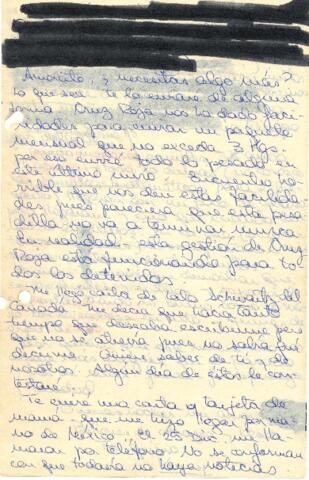 Amorcito, ¿necesitas algo más?
Lo que sea te lo enviaré de alguna
forma. Cruz Roja nos ha dado faci-
lidades para enviar un paquete
mensual que no exceda 3 Kgs.
por eso envié todo lo pesado en
este último envío. Encuentro ho-
rrible que nos den estas facilida-
des, pues pareciera que esta pesa-
dilla no va a terminar nunca
En realidad esta gestión de Cruz
Roja está funcionando para to-
dos los detenidos.
Me llegó carta de Lalo Schwartz del
Canadá. Me decía que hacía tanto
tiempo que deseaba escribirme pero
que no se atrevía pues no sabía qué
decirme. Quieren saber de ti y de
nosotros. Algún día de éstos le con-
testaré.
Te envié una carta y tarjeta de
mamá que me hizo llegar por ma-
no de México. El 25 Dic. me lla-
maron por teléfono. No se conforman
con que todavía no haya noticias.